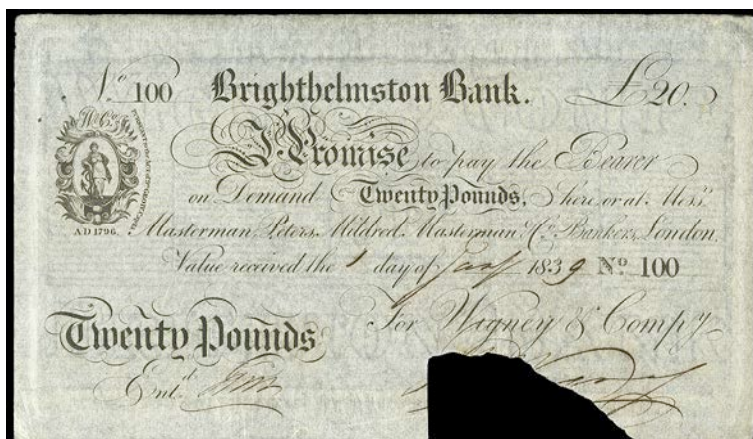 No 100 Brighthelmston Bank. £20.
W & Co.
I Promise to pay the Bearer
on Demand Twenty Pounds, here or at Messrs
AD 1796. Masterman, Peters, Mildred, Masterman, & Co. Bankers, London.
Value received the 1 day of 1839 No 100
Twenty Pounds For Wigney & Compy
Entd